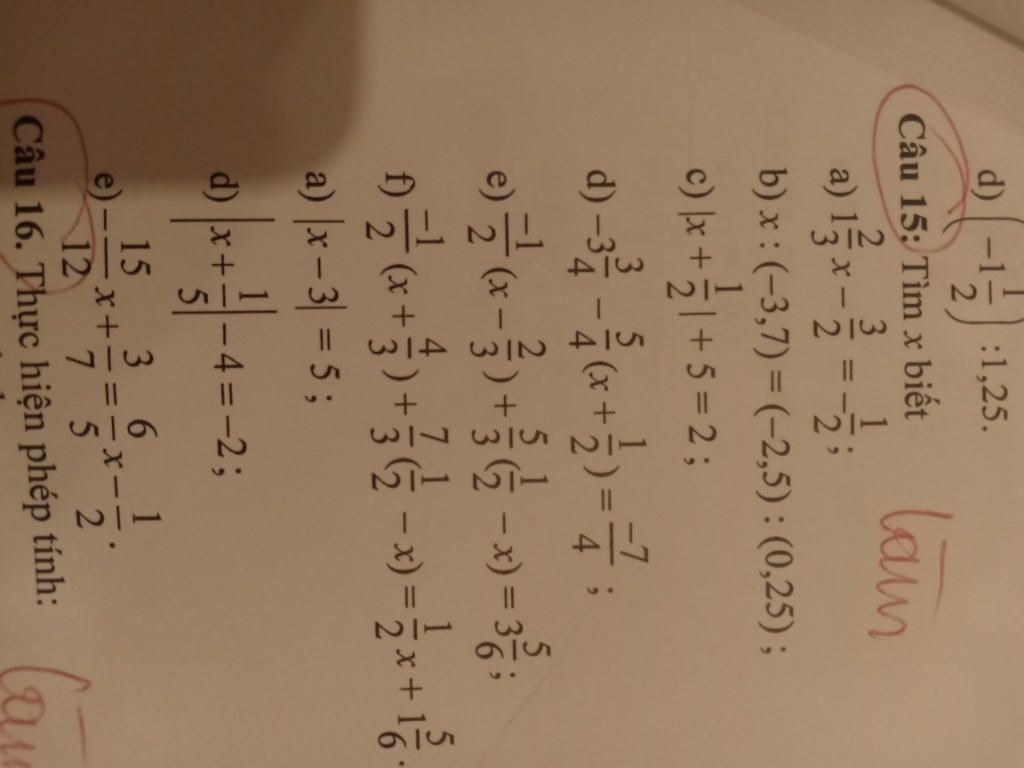 d) (-1 1/2) : 1,25.
Câu 15: Tìm x biết
Làm
a) 1 2/3 x - 3/2 = -1/2 ;
b) x : (-3,7) = (-2,5) : (0,25) ;
c) |x + 1/2| + 5 = 2 ;
d) -3 3/4 - 5/4 (x + 1/2) = -7/4 ;
e) -1/2 (x - 2/3) + 5/3 (1/2 - x) = 3 5/6 ;
f) -1/2 (x + 4/3) + 7/3 (1/2 - x) = 1/2 x + 1 5/6 .
a) |x - 3| = 5 ;
d) |x + 1/5| - 4 = -2 ;
e) -15/12 x + 3/7 = 6/5 x - 1/2 .
Câu 16. Thực hiện phép tính:
Làm